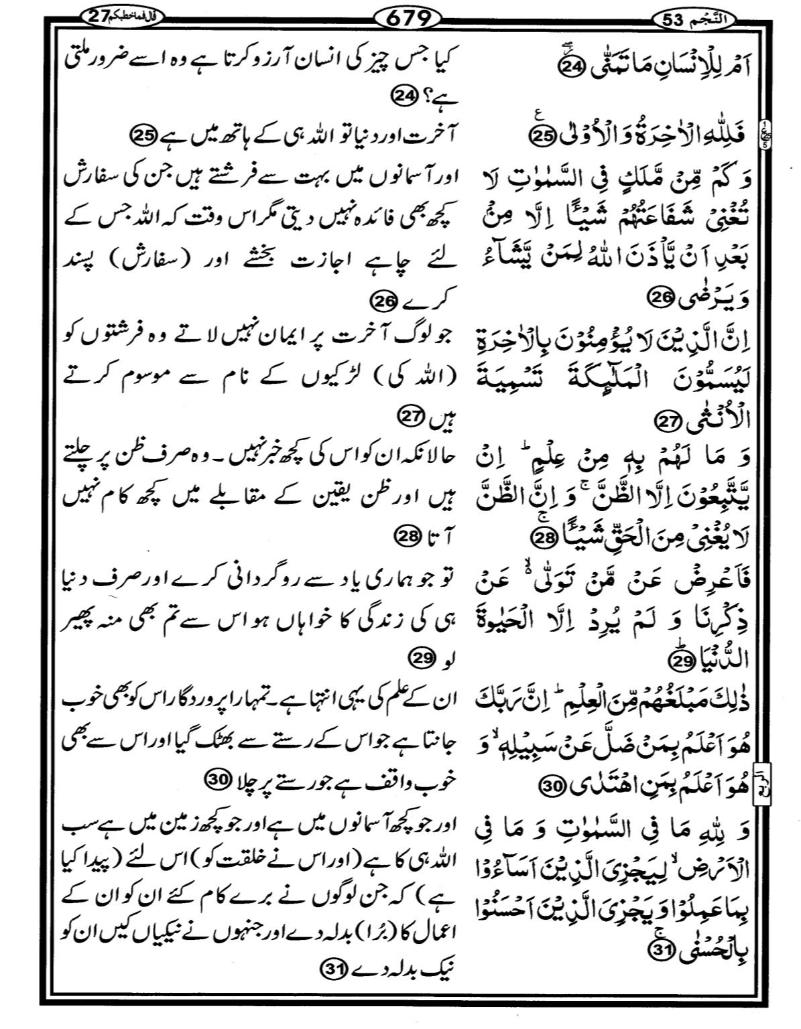 النَّجْم 53
679
قال فما خطبكم 27
اَمْ لِلْاِنْسَانِ مَا تَمَنّٰى ﴿24﴾
فَلِلّٰهِ الْاٰخِرَةُ وَالْاُوْلٰى ﴿25﴾
وَ كَمْ مِّنْ مَّلَكٍ فِى السَّمٰوٰتِ لَا
تُغْنِىْ شَفَاعَتُهُمْ شَيْـًٔا اِلَّا مِنْۢ
بَعْدِ اَنْ يَّاْذَنَ اللّٰهُ لِمَنْ يَّشَآءُ
وَيَرْضٰى ﴿26﴾
اِنَّ الَّذِيْنَ لَا يُؤْمِنُوْنَ بِالْاٰخِرَةِ
لَيُسَمُّوْنَ الْمَلٰٓئِكَةَ تَسْمِيَةَ
الْاُنْثٰى ﴿27﴾
وَ مَا لَهُمْ بِهٖ مِنْ عِلْمٍ ؕ اِنْ
يَّتَّبِعُوْنَ اِلَّا الظَّنَّ ۚ وَ اِنَّ الظَّنَّ
لَا يُغْنِىْ مِنَ الْحَقِّ شَيْـًٔا ۚ ﴿28﴾
فَاَعْرِضْ عَنْ مَّنْ تَوَلّٰى ۙ عَنْ
ذِكْرِنَا وَ لَمْ يُرِدْ اِلَّا الْحَيٰوةَ
الدُّنْيَا ؕ ﴿29﴾
ذٰلِكَ مَبْلَغُهُمْ مِّنَ الْعِلْمِ ؕ اِنَّ رَبَّكَ
هُوَ اَعْلَمُ بِمَنْ ضَلَّ عَنْ سَبِيْلِهٖ ۙ وَ
هُوَ اَعْلَمُ بِمَنِ اهْتَدٰى ﴿30﴾
وَ لِلّٰهِ مَا فِى السَّمٰوٰتِ وَ مَا فِى
الْاَرْضِ ۙ لِيَجْزِىَ الَّذِيْنَ اَسَآءُوْا
بِمَا عَمِلُوْا وَ يَجْزِىَ الَّذِيْنَ اَحْسَنُوْا
بِالْحُسْنٰى ۚ ﴿31﴾
الربع
کیا جس چیز کی انسان آرزو کرتا ہے وہ اسے ضرور ملتی
ہے؟ ﴿24﴾
آخرت اور دنیا تو اللہ ہی کے ہاتھ میں ہے ﴿25﴾
اور آسمانوں میں بہت سے فرشتے ہیں جن کی سفارش
کچھ بھی فائدہ نہیں دیتی مگر اس وقت کہ اللہ جس کے
لئے چاہے اجازت بخشے اور (سفارش) پسند
کرے ﴿26﴾
جو لوگ آخرت پر ایمان نہیں لاتے وہ فرشتوں کو
(اللہ کی) لڑکیوں کے نام سے موسوم کرتے
ہیں ﴿27﴾
حالانکہ ان کو اس کی کچھ خبر نہیں۔ وہ صرف ظن پر چلتے
ہیں اور ظن یقین کے مقابلے میں کچھ کام نہیں
آتا ﴿28﴾
تو جو ہماری یاد سے روگردانی کرے اور صرف دنیا
ہی کی زندگی کا خواہاں ہو اس سے تم بھی منہ پھیر
لو ﴿29﴾
ان کے علم کی یہی انتہا ہے۔ تمہارا پروردگار اس کو بھی خوب
جانتا ہے جو اس کے رستے سے بھٹک گیا اور اس سے بھی
خوب واقف ہے جو رستے پر چلا ﴿30﴾
اور جو کچھ آسمانوں میں ہے اور جو کچھ زمین میں ہے سب
اللہ ہی کا ہے (اور اس نے خلقت کو) اس لئے (پیدا کیا
ہے) کہ جن لوگوں نے برے کام کئے ان کو ان کے
اعمال کا (بُرا) بدلہ دے اور جنہوں نے نیکیاں کیں ان کو
نیک بدلہ دے ﴿31﴾